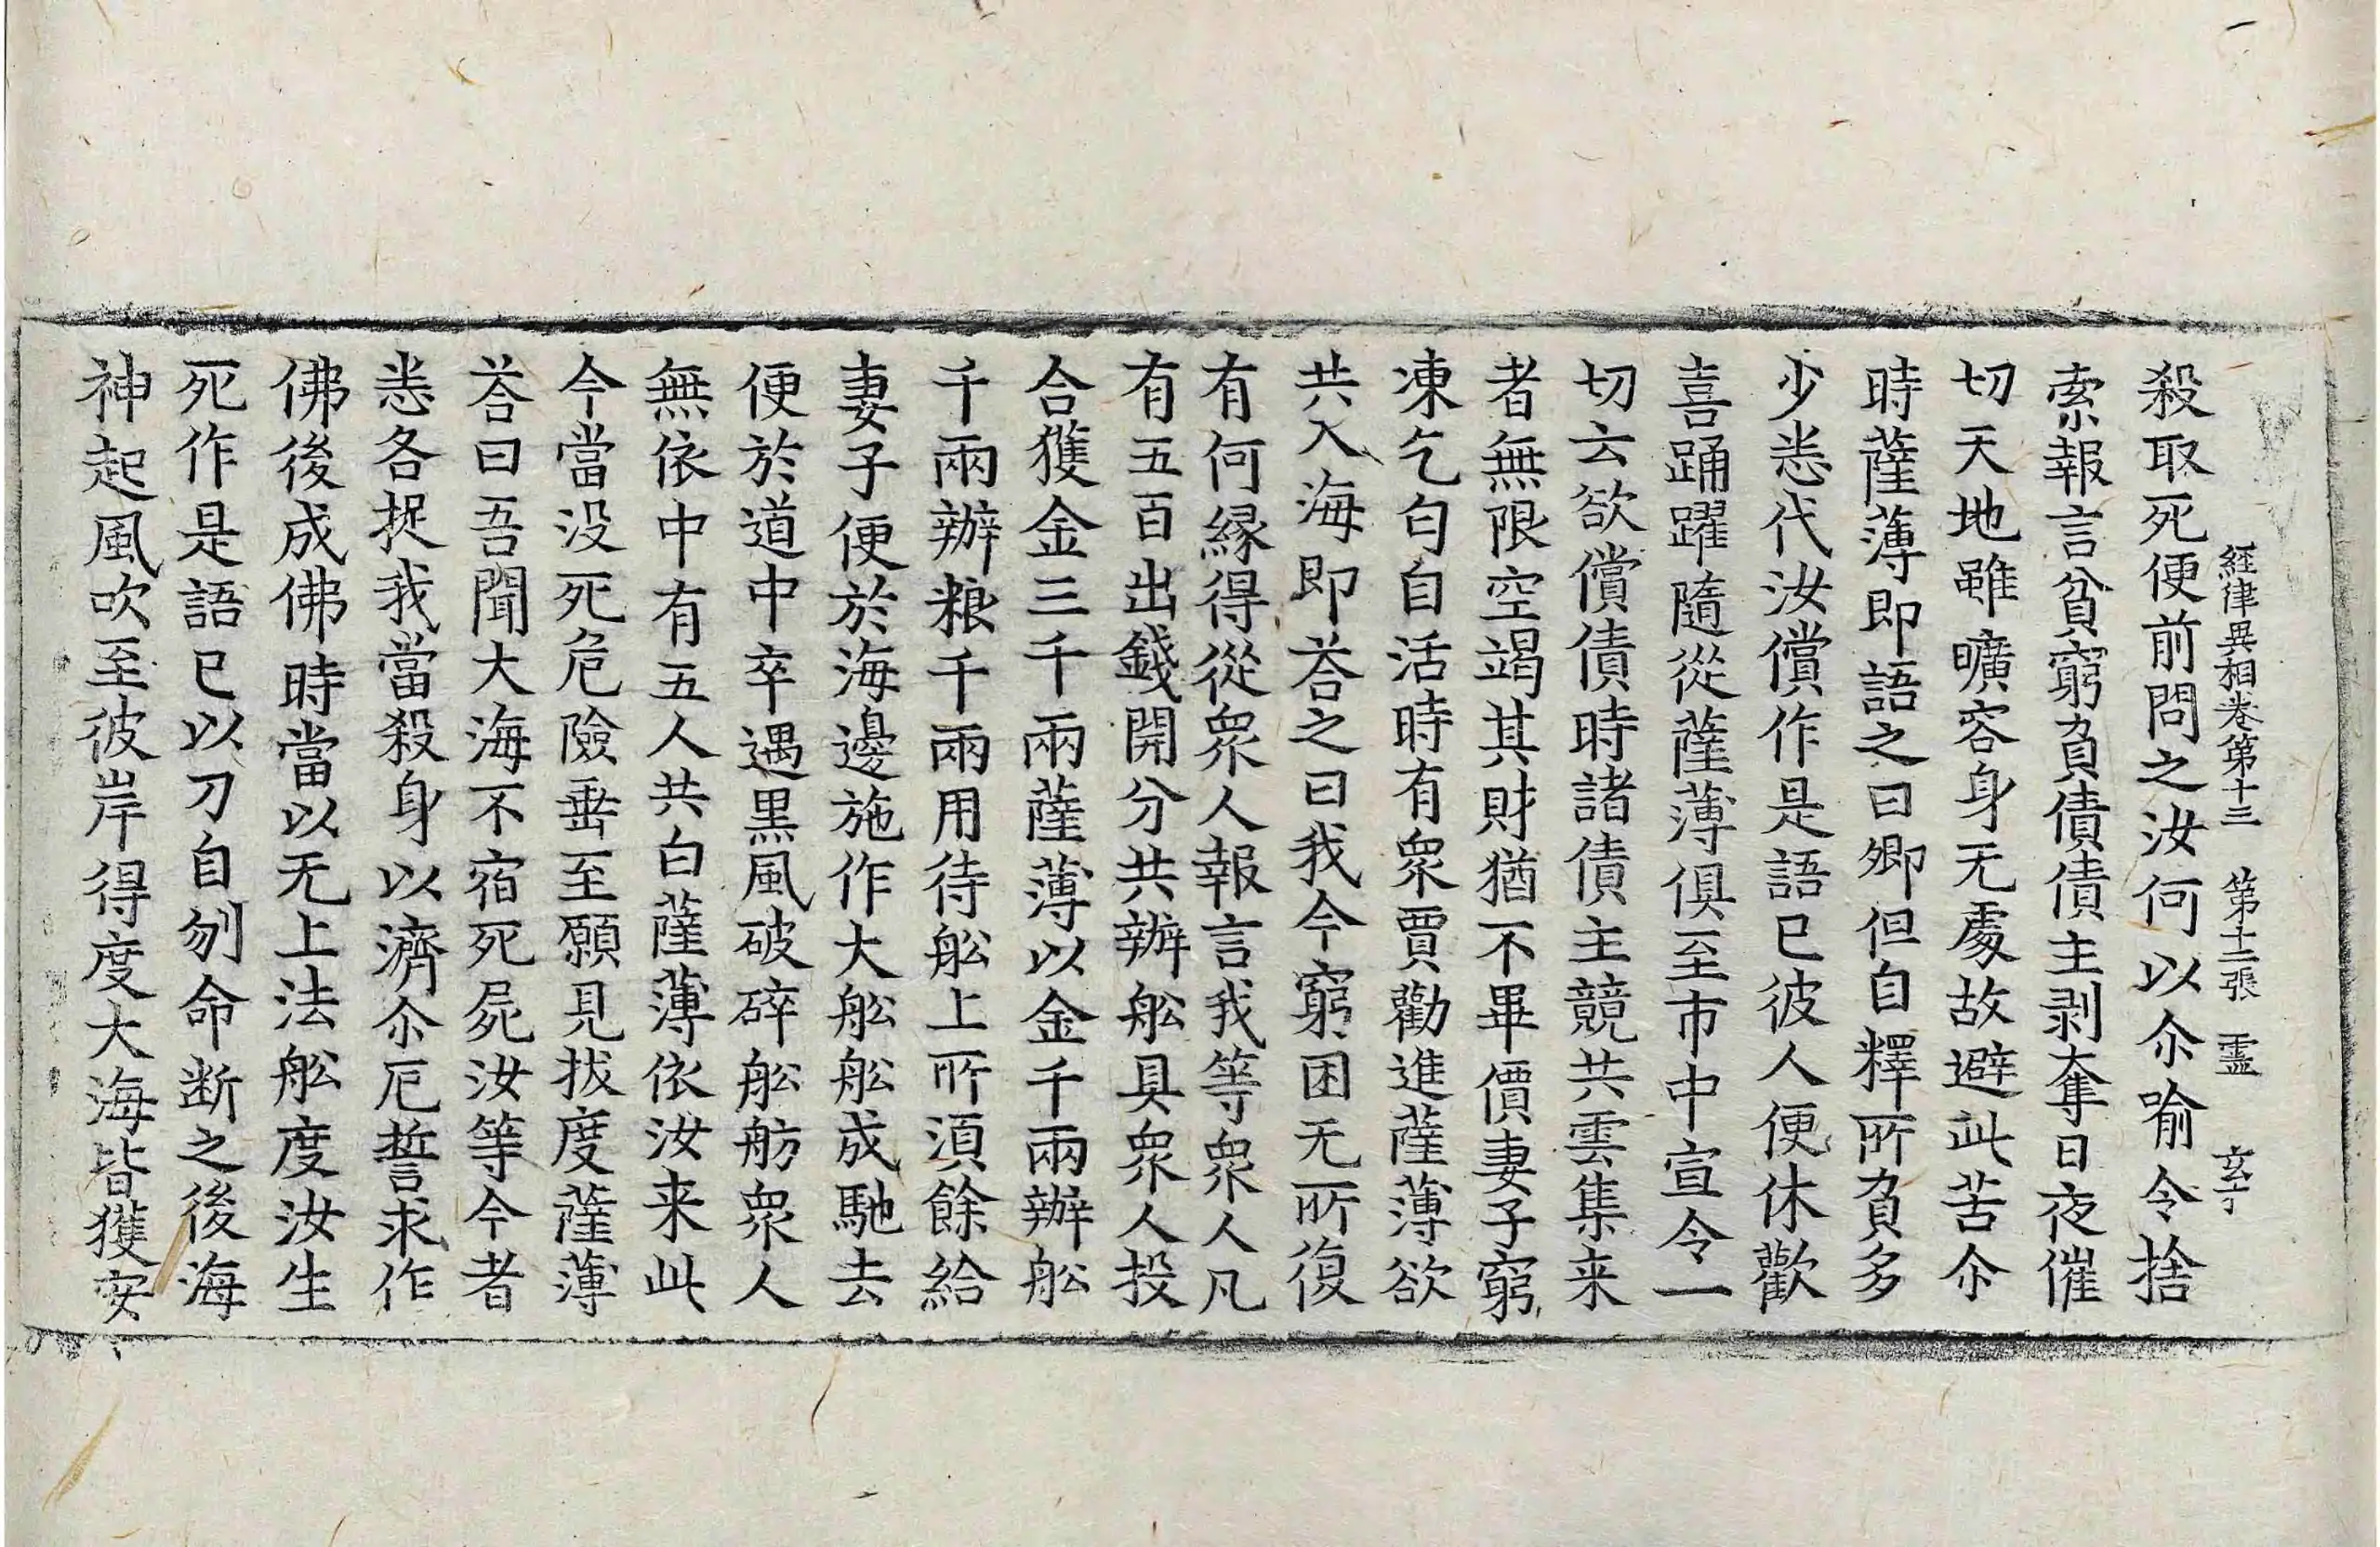 經律異相卷第十三 第十二張 靈 玄了
殺取死便前問之汝何以尒喻令捨
索報言貧窮負債債主剥奪日夜催
切天地雖曠容身无處故避此苦尒
時薩薄即語之曰卿但自釋所負多
少悉代汝償作是語已彼人便休歡
喜踊躍隨從薩薄俱至市中宣令一
切云欲償債時諸債主競共雲集来
者無限空竭其財猶不畢價妻子窮
凍乞匃自活時有衆賈勸進薩薄欲
共入海即荅之曰我今窮困无所復
有何縁得從衆人報言我等衆人凡
有五百出錢開分共辦舩具衆人投
合獲金三千兩薩薄以金千兩辦舩
千兩辦粮千兩用待舩上所湏餘給
妻子便於海邊施作大舩舩成馳去
便於道中卒遇黒風破碎舩舫衆人
無依中有五人共白薩薄依汝来此
今當没死危險垂至願見拔度薩薄
荅曰吾聞大海不宿死屍汝等今者
悉各捉我當殺身以濟尒厄誓求作
佛後成佛時當以无上法舩度汝生
死作是語已以刀自刎命断之後海
神起風吹至彼岸得度大海皆獲安